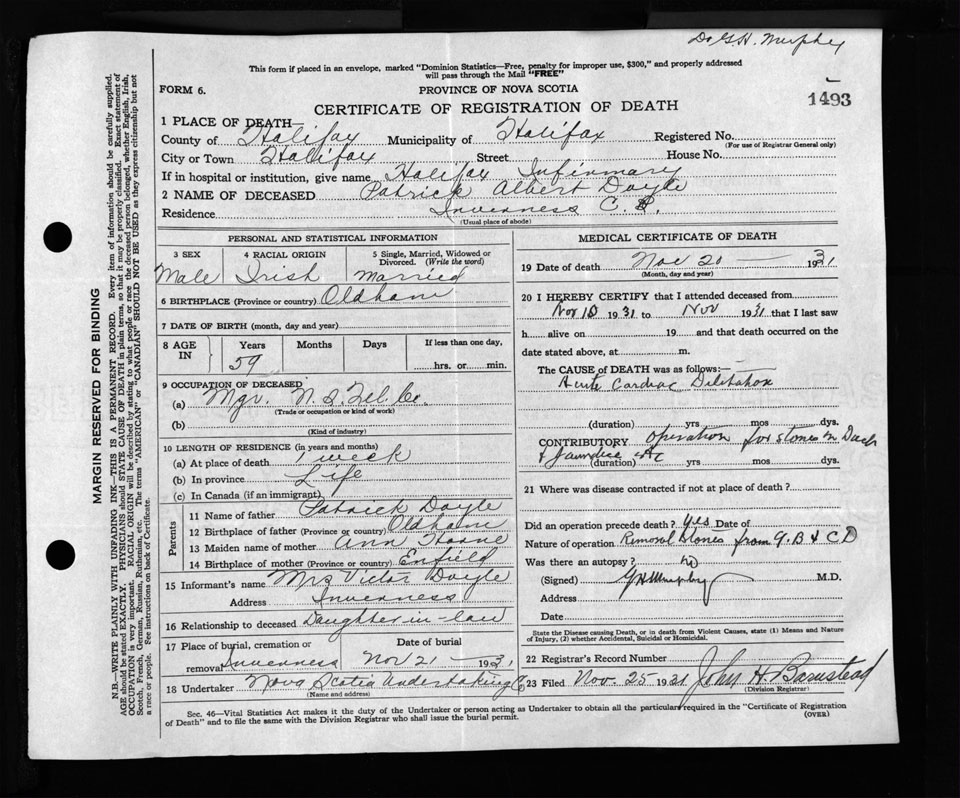 Dr G.H. Murphy
This form if placed in an envelope, marked "Dominion Statistics—Free, penalty for improper use, $300," and properly addressed
will pass through the Mail "FREE"
FORM 6.
PROVINCE OF NOVA SCOTIA
1493
CERTIFICATE OF REGISTRATION OF DEATH
1 PLACE OF DEATH—
County of Halifax Municipality of Halifax Registered No.
(For use of Registrar General only)
City or Town Halifax Street House No.
If in hospital or institution, give name Halifax Infirmary
2 NAME OF DECEASED Patrick Albert Doyle
Residence Inverness C.B.
(Usual place of abode)
PERSONAL AND STATISTICAL INFORMATION
3 SEX 4 RACIAL ORIGIN 5 Single, Married, Widowed or
Divorced. (Write the word)
Male Irish Married
6 BIRTHPLACE (Province or country) Oldham
7 DATE OF BIRTH (month, day and year)
8 AGE IN Years Months Days If less than one day,
59 hrs. or min.
9 OCCUPATION OF DECEASED
(a) Mgr. N.S. Tel. Co.
(Trade or occupation or kind of work)
(b)
(Kind of industry)
10 LENGTH OF RESIDENCE (in years and months)
(a) At place of death 1 week
(b) In province Life
(c) In Canada (if an immigrant)
Parents
11 Name of father Patrick Doyle
12 Birthplace of father (Province or country) Oldham
13 Maiden name of mother Ann
14 Birthplace of mother (Province or country) Enfield
15 Informant's name Mrs Victor Doyle
Address Inverness
16 Relationship to deceased Daughter-in-law
17 Place of burial, cremation or Date of burial
removal Inverness Nov 21 — 1931
18 Undertaker Nova Scotia Undertaking Co
(Name and address)
MEDICAL CERTIFICATE OF DEATH
19 Date of death Nov 20 — 1931
(Month, day and year)
20 I HEREBY CERTIFY that I attended deceased from
Nov 10 1931 to Nov 1931 that I last saw
h alive on 19 and that death occurred on the
date stated above, at m.
The CAUSE OF DEATH was as follows:—
Acute Cardiac Dilitation
(duration) yrs mos dys.
CONTRIBUTORY operation for stones in Duct
& Jaundice etc
(duration) yrs mos dys.
21 Where was disease contracted if not at place of death?
Did an operation precede death? Yes Date of
Nature of operation Removal Stones from G.B & C D
Was there an autopsy? No
(Signed) G H Murphy M.D.
Address
Date
State the Disease causing Death, or in death from Violent Causes, state (1) Means and Nature
of Injury, (2) whether Accidental, Suicidal or Homicidal.
22 Registrar's Record Number
23 Filed Nov. 25 1931 John H Barnstead
(Division Registrar)
Sec. 46—Vital Statistics Act makes it the duty of the Undertaker or person acting as Undertaker to obtain all the particulars required in the "Certificate of Registration
of Death" and to file the same with the Division Registrar who shall issue the burial permit.
(OVER)
MARGIN RESERVED FOR BINDING
N.B.—WRITE PLAINLY WITH UNFADING INK—THIS IS A PERMANENT RECORD. Every item of information should be carefully supplied.
AGE should be stated EXACTLY. PHYSICIANS should STATE CAUSE OF DEATH in plain terms, so that it may be properly classified. Exact statement of
OCCUPATION is very important. RACIAL ORIGIN will be described by stating to what people or race the deceased person belonged, whether English, Irish,
Scotch, French, German, Russian, Ruthenian, etc. The terms "AMERICAN" or "CANADIAN" SHOULD NOT BE USED as they express citizenship but not
a race or people. See instructions on back of Certificate.